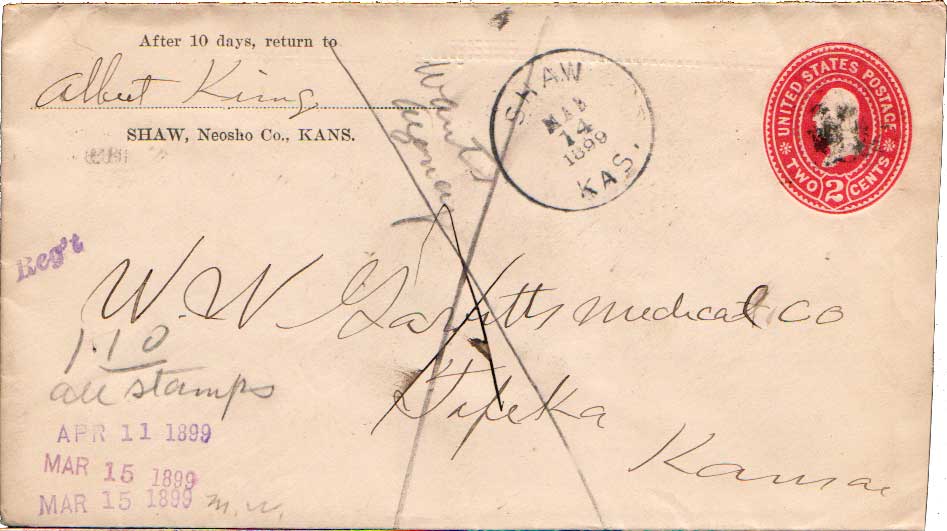 After 10 days, return to
Albert King
SHAW, Neosho Co., KANS.
wants
agency
SHAW
MAR
14
1899
KAS.
UNITED STATES POSTAGE
TWO 2 CENTS
Rec't
W. W. Medical Co
1.10
all stamps
Topeka
APR 11 1899
MAR 15 1899
MAR 15 1899